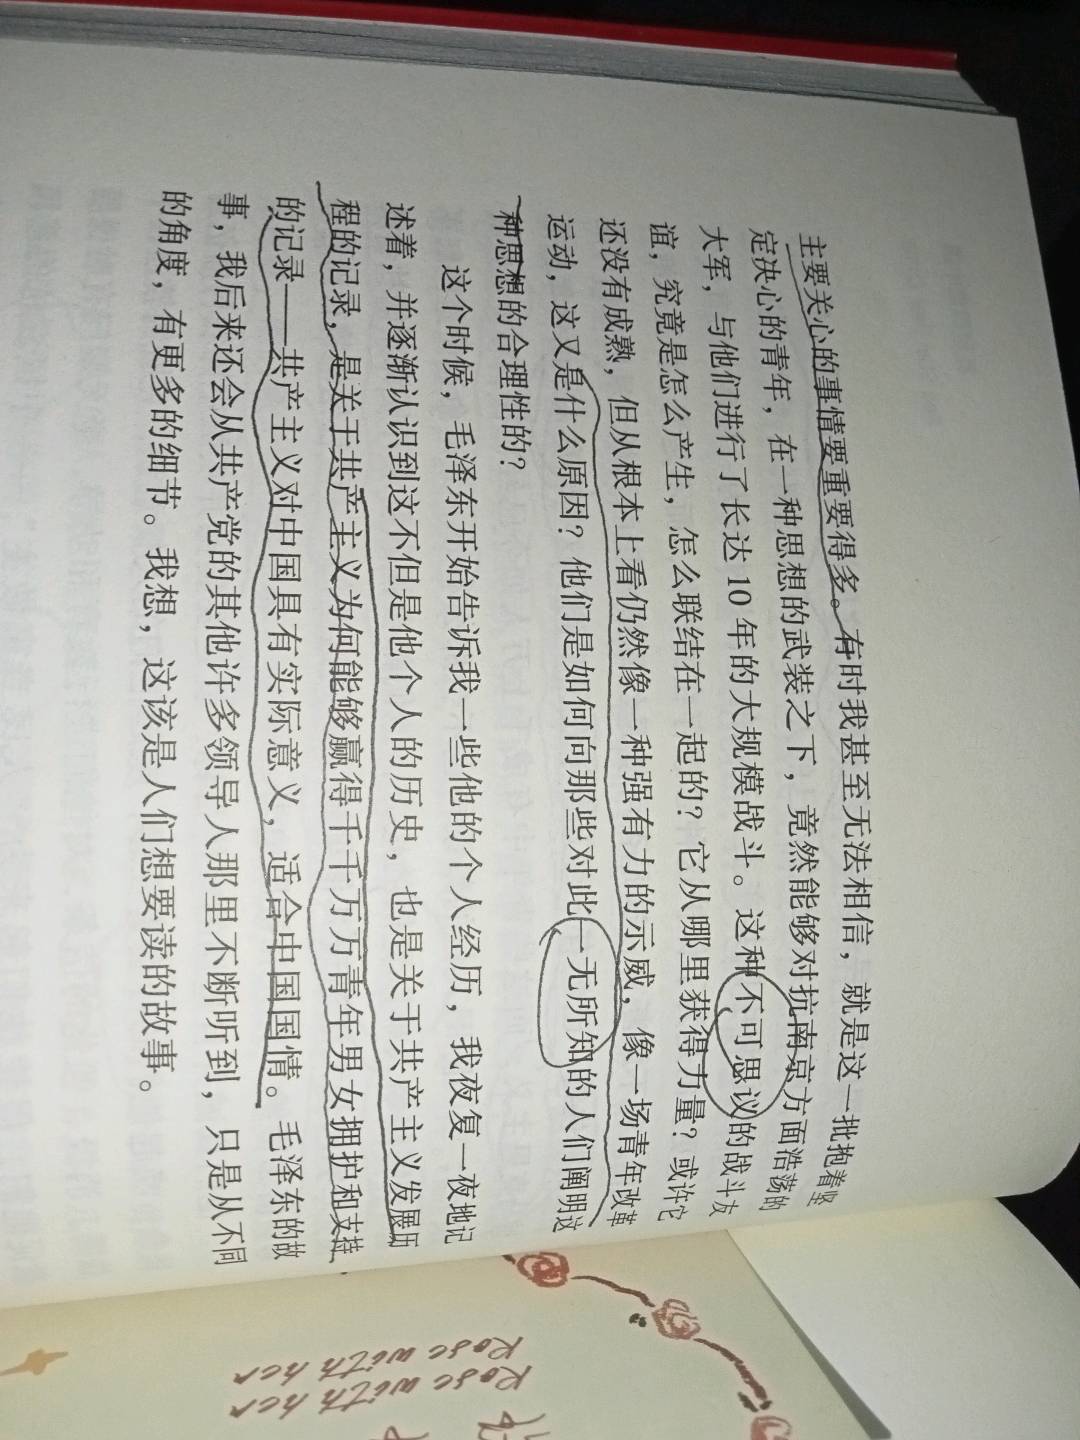 主要关心的事情要重要得多。有时我甚至无法相信，就是这一批抱着坚
定决心的青年，在一种思想的武装之下，竟然能够对抗南京方面浩荡的
大军，与他们进行了长达 10 年的大规模战斗。这种不可思议的战斗友
谊，究竟是怎么产生，怎么联结在一起的？它从哪里获得力量？或许它
还没有成熟，但从根本上看仍然像一种强有力的示威，像一场青年改革
运动，这又是什么原因？他们是如何向那些对此一无所知的人们阐明这
种思想的合理性的？
这个时候，毛泽东开始告诉我一些他的个人经历，我夜复一夜地记
述着，并逐渐认识到这不但是他个人的历史，也是关于共产主义发展历
程的记录，是关于共产主义为何能够赢得千千万万青年男女拥护和支持
的记录——共产主义对中国具有实际意义，适合中国国情。毛泽东的故
事，我后来还会从共产党的其他许多领导人那里不断听到，只是从不同
的角度，有更多的细节。我想，这该是人们想要读的故事。
Rose with her
Rose with her